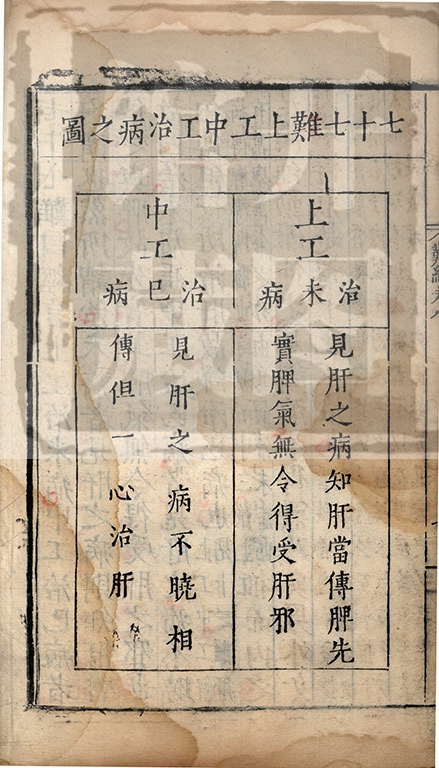 七十七難上工中工治病之圖
上工
治未病
見肝之病知肝當傳脾先
實脾氣無令得受肝邪
中工
治已病
見肝之病不曉相
傳但一心治肝